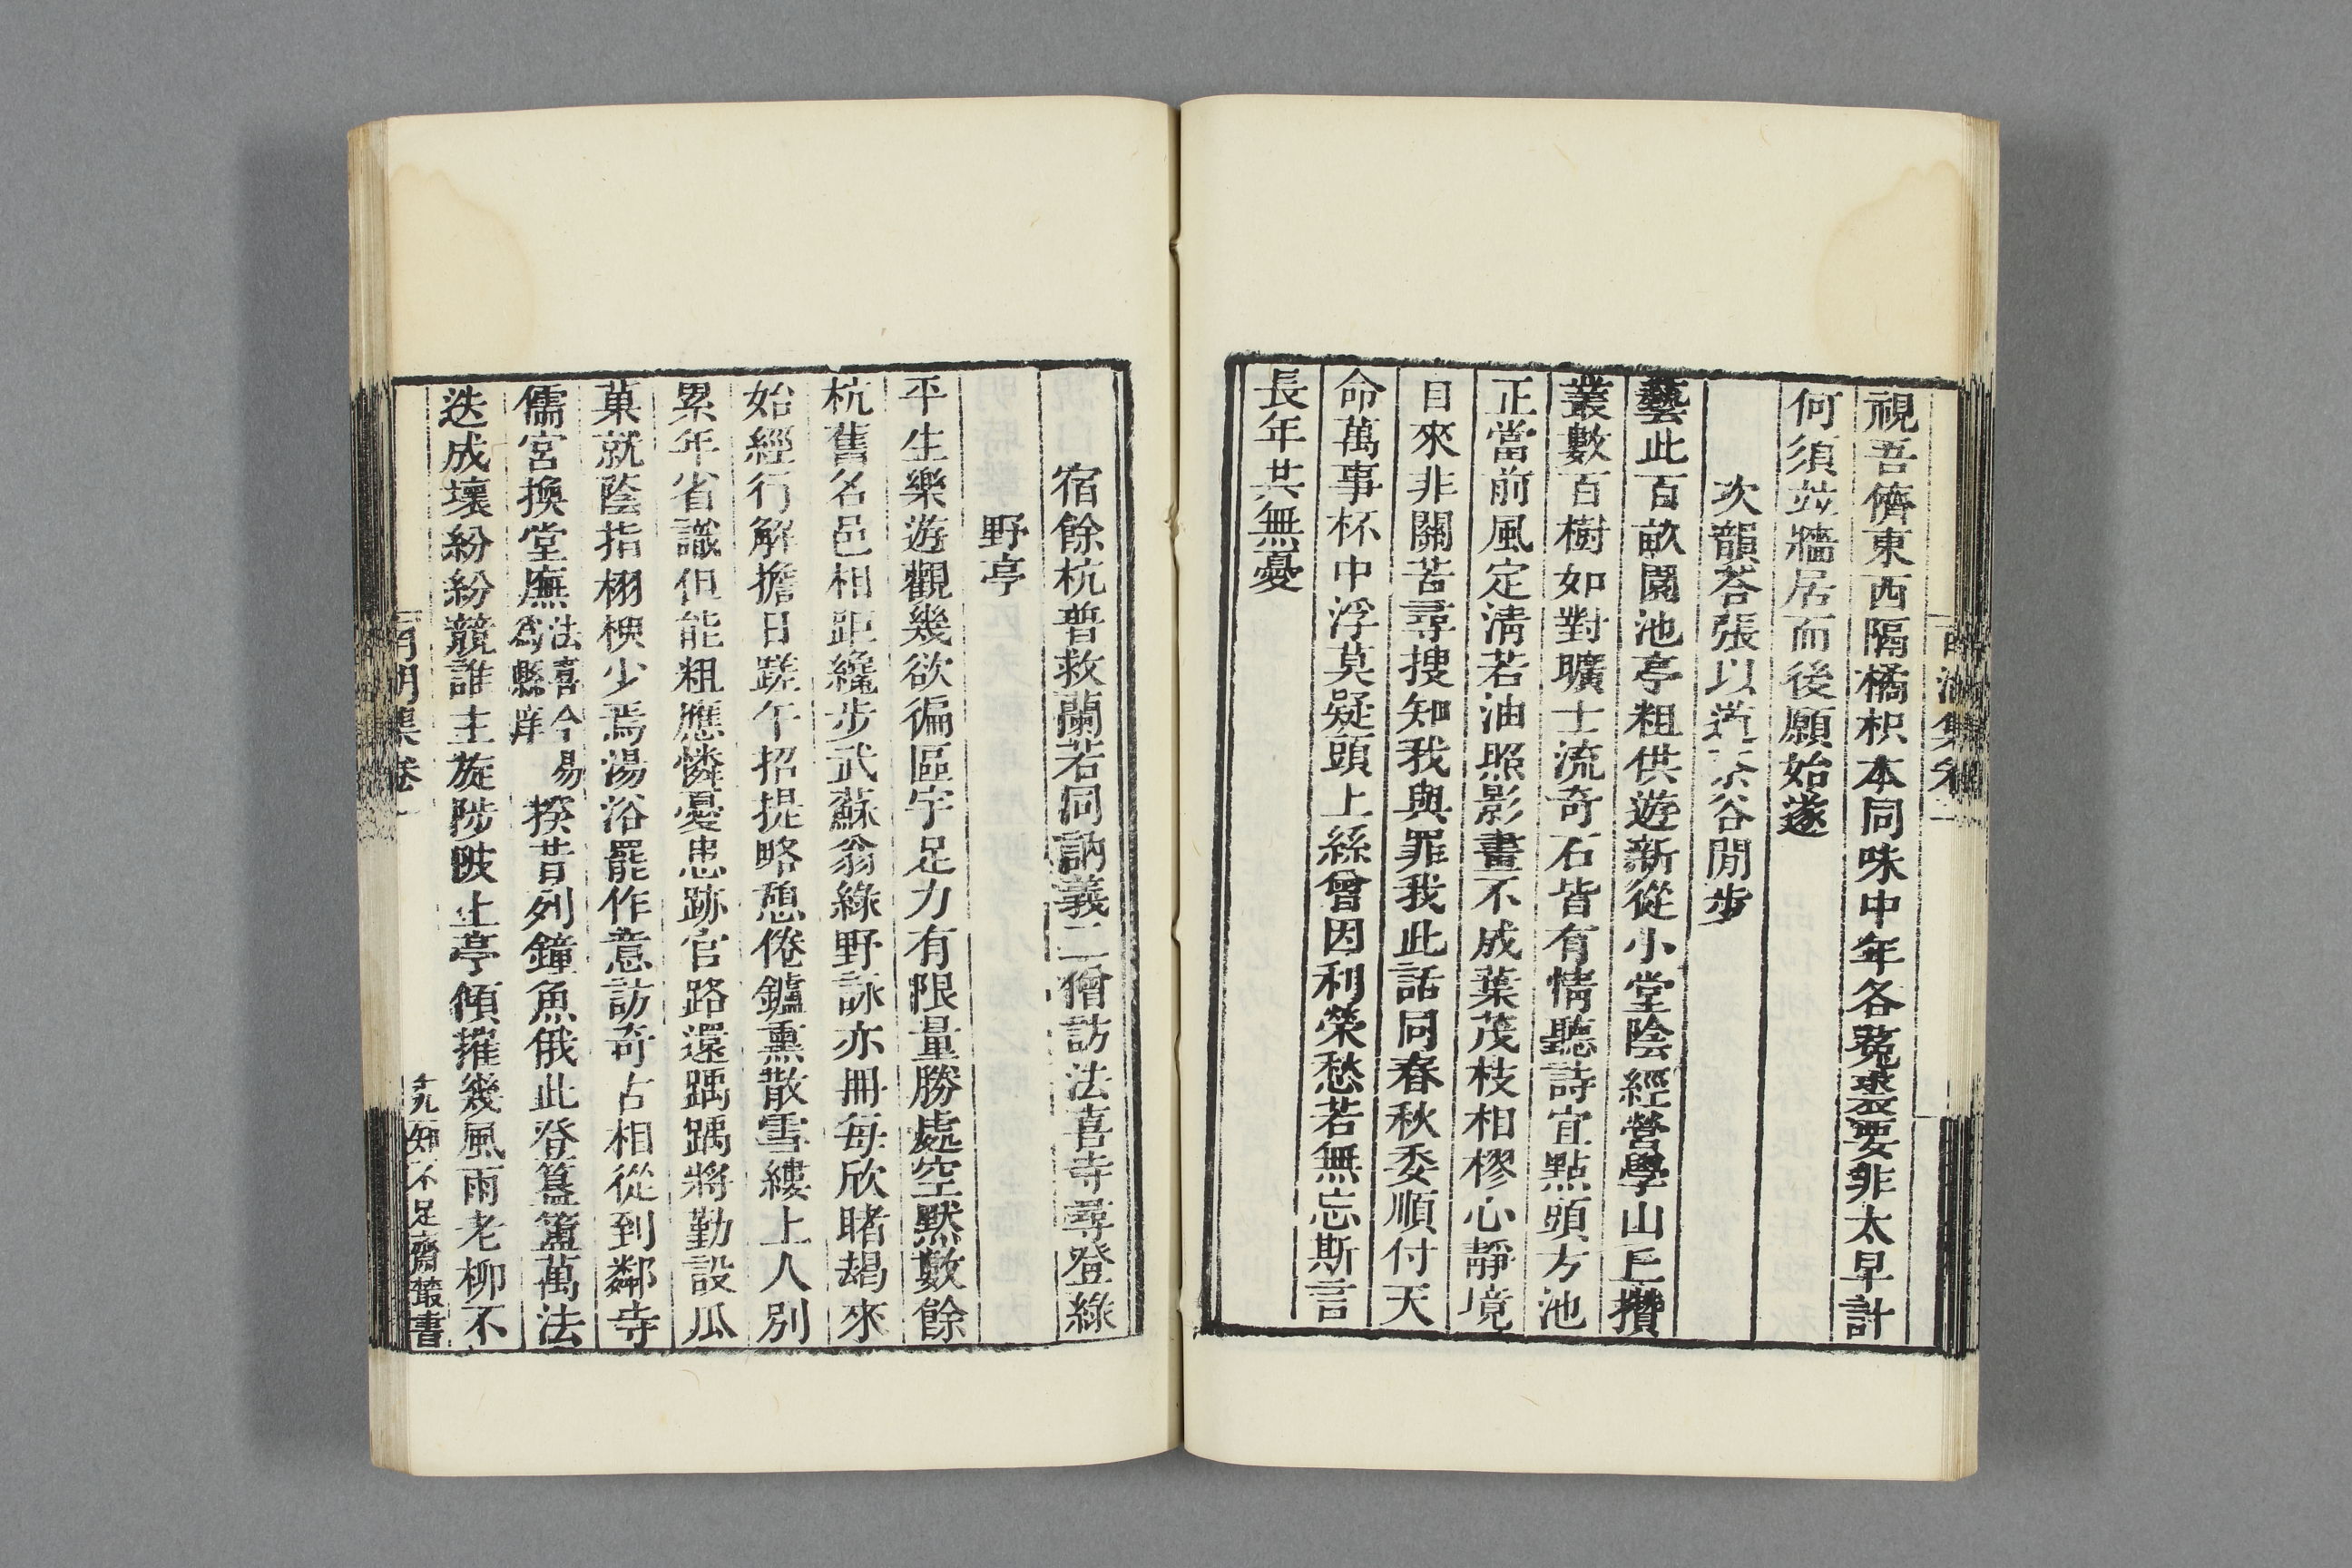 視吾儕東西隔橘枳本同味中年各菟裘要非太早計
何須竝牆居而後願始遂
次韻荅張以道茶谷閒步
藝此百畝園池亭粗供遊新從小堂陰經營學山丘攢
叢數百樹如對曠士流奇石皆有情聽詩宜點頭方池
正當前風定清若油照影畫不成葉茂枝相樛心靜境
自來非關苦尋搜知我與罪我此話同春秋委順付天
命萬事杯中浮莫疑頭上絲曾因利榮愁若無忘斯言
長年共無憂
宿餘杭普救蘭若同訥義二僧訪法喜寺尋登綠
野亭
平生樂遊觀幾欲徧區宇足力有限量勝處空默數餘
杭舊名邑相距纔步武蘇翁綠野詠亦冊每欣睹朅來
始經行解擔日蹉午招提略憩倦鑪熏散雪縷上人別
累年省識但能粗應憐憂患跡官路還踽踽將勤設瓜
菓就蔭指栩楩少焉湯浴罷作意訪奇占相從到鄰寺
儒宮換堂廡法喜今易爲縣庠揆昔列鐘魚俄此登簋簠萬法
迭成壞紛紛競誰主旋陟陂上亭傾摧幾風雨老柳不
南湖集卷一
知不足齋叢書